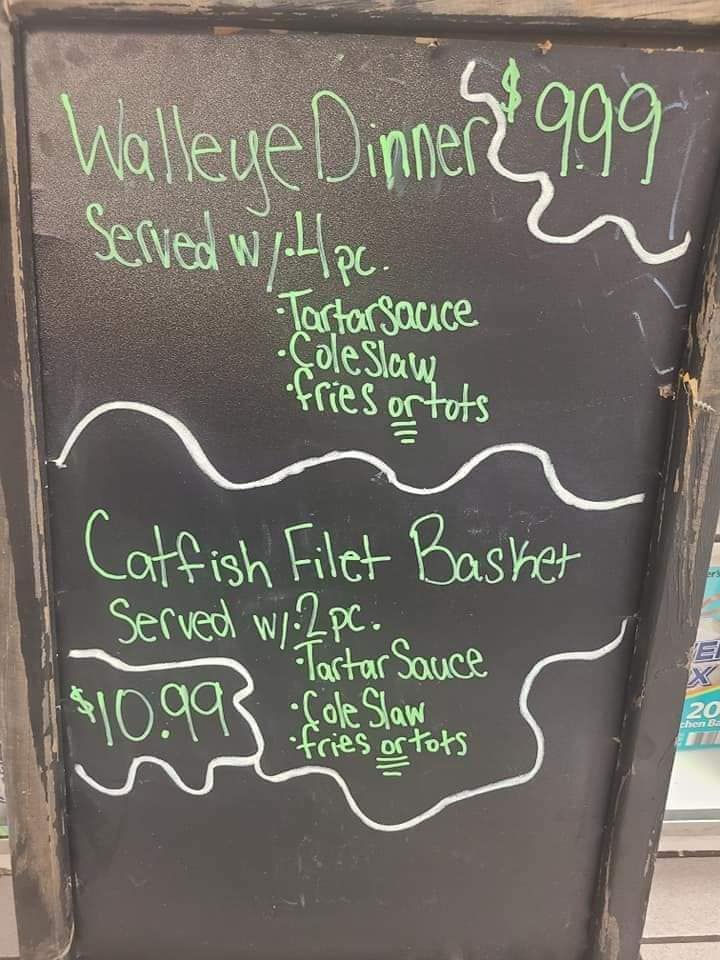 Walleye Dinner $9.99
Served w/ • 4 pc.
• Tartar sauce
• Cole Slaw
• fries or tots
Catfish Filet Basket
Served w/ • 2 pc.
• Tartar Sauce
$10.99
• Cole Slaw
• fries or tots
20